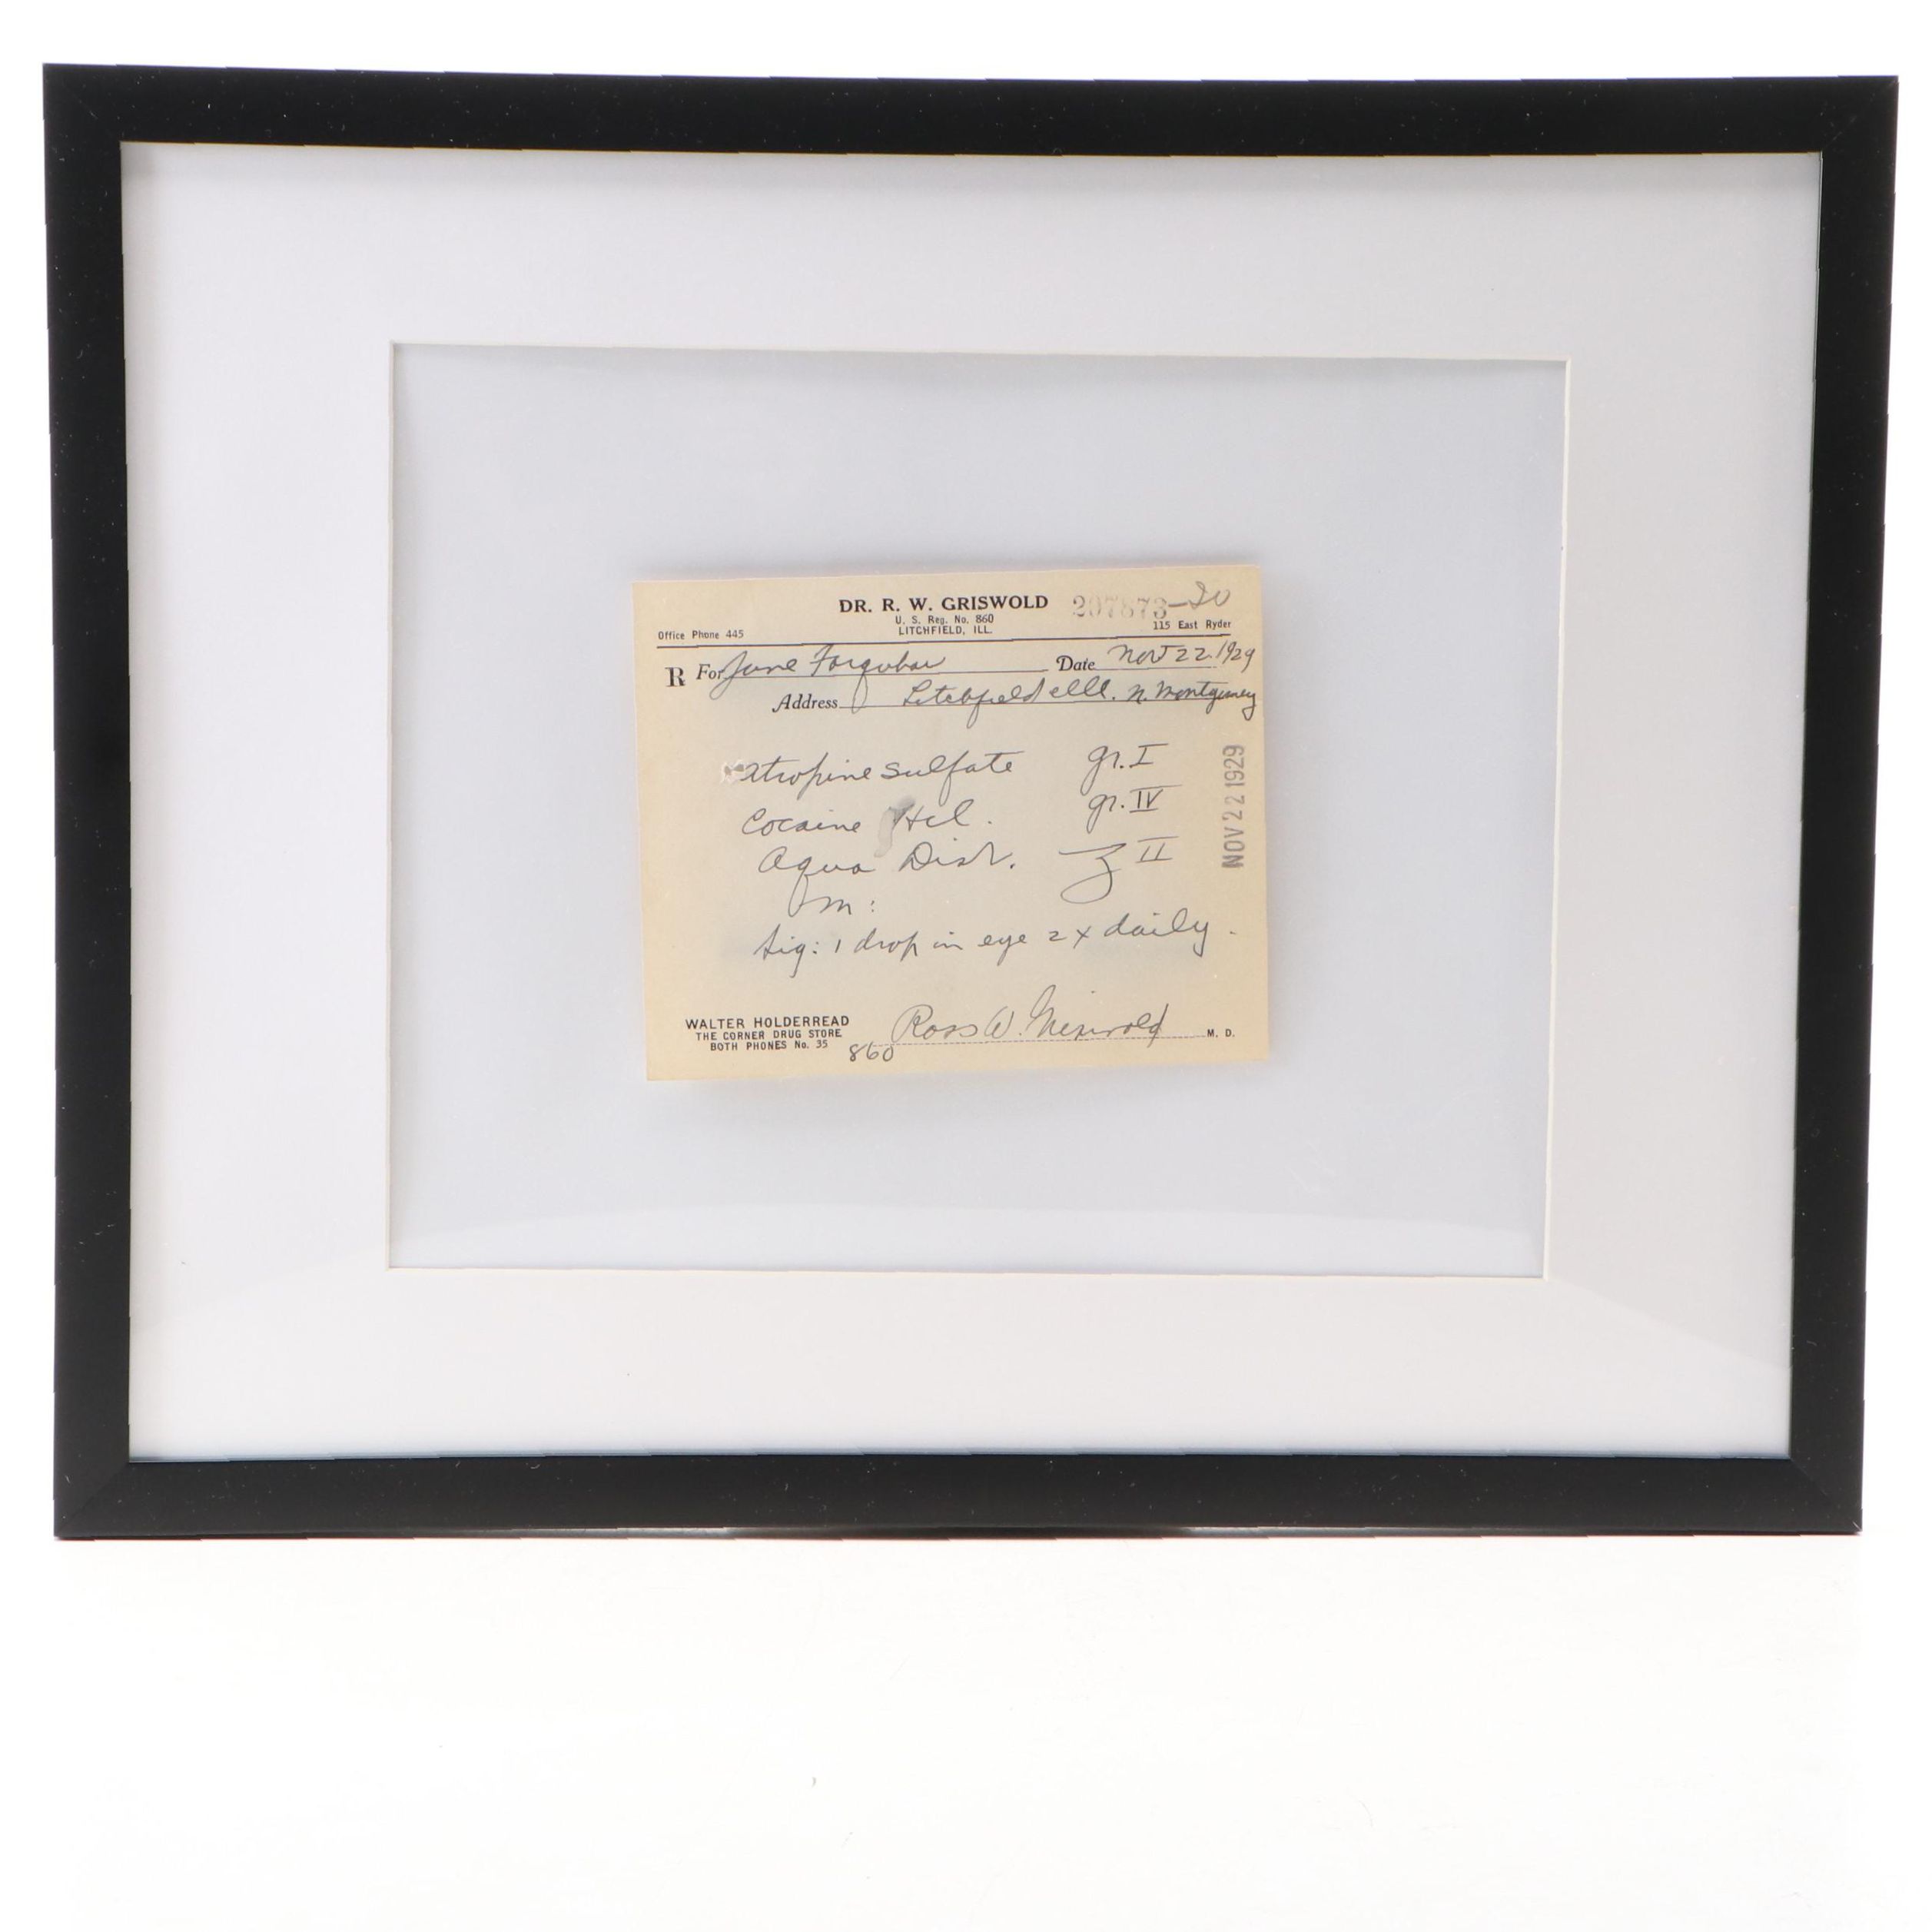 DR. R. W. GRISWOLD 207873-20
U. S. Reg. No. 860
Office Phone 445 LITCHFIELD, ILL. 115 East Ryder
R For June Forquhar Date Nov 22 1929
Address Litchfield Ill. N. Montgomery
Atropine sulfate gr. I
Cocaine Hcl. gr. IV
Aqua Dist. ʒ II
m:
Sig: 1 drop in eye 2x daily.
NOV 22 1929
WALTER HOLDERREAD
THE CORNER DRUG STORE
BOTH PHONES No. 35
860 Ross W. Griswold M. D.